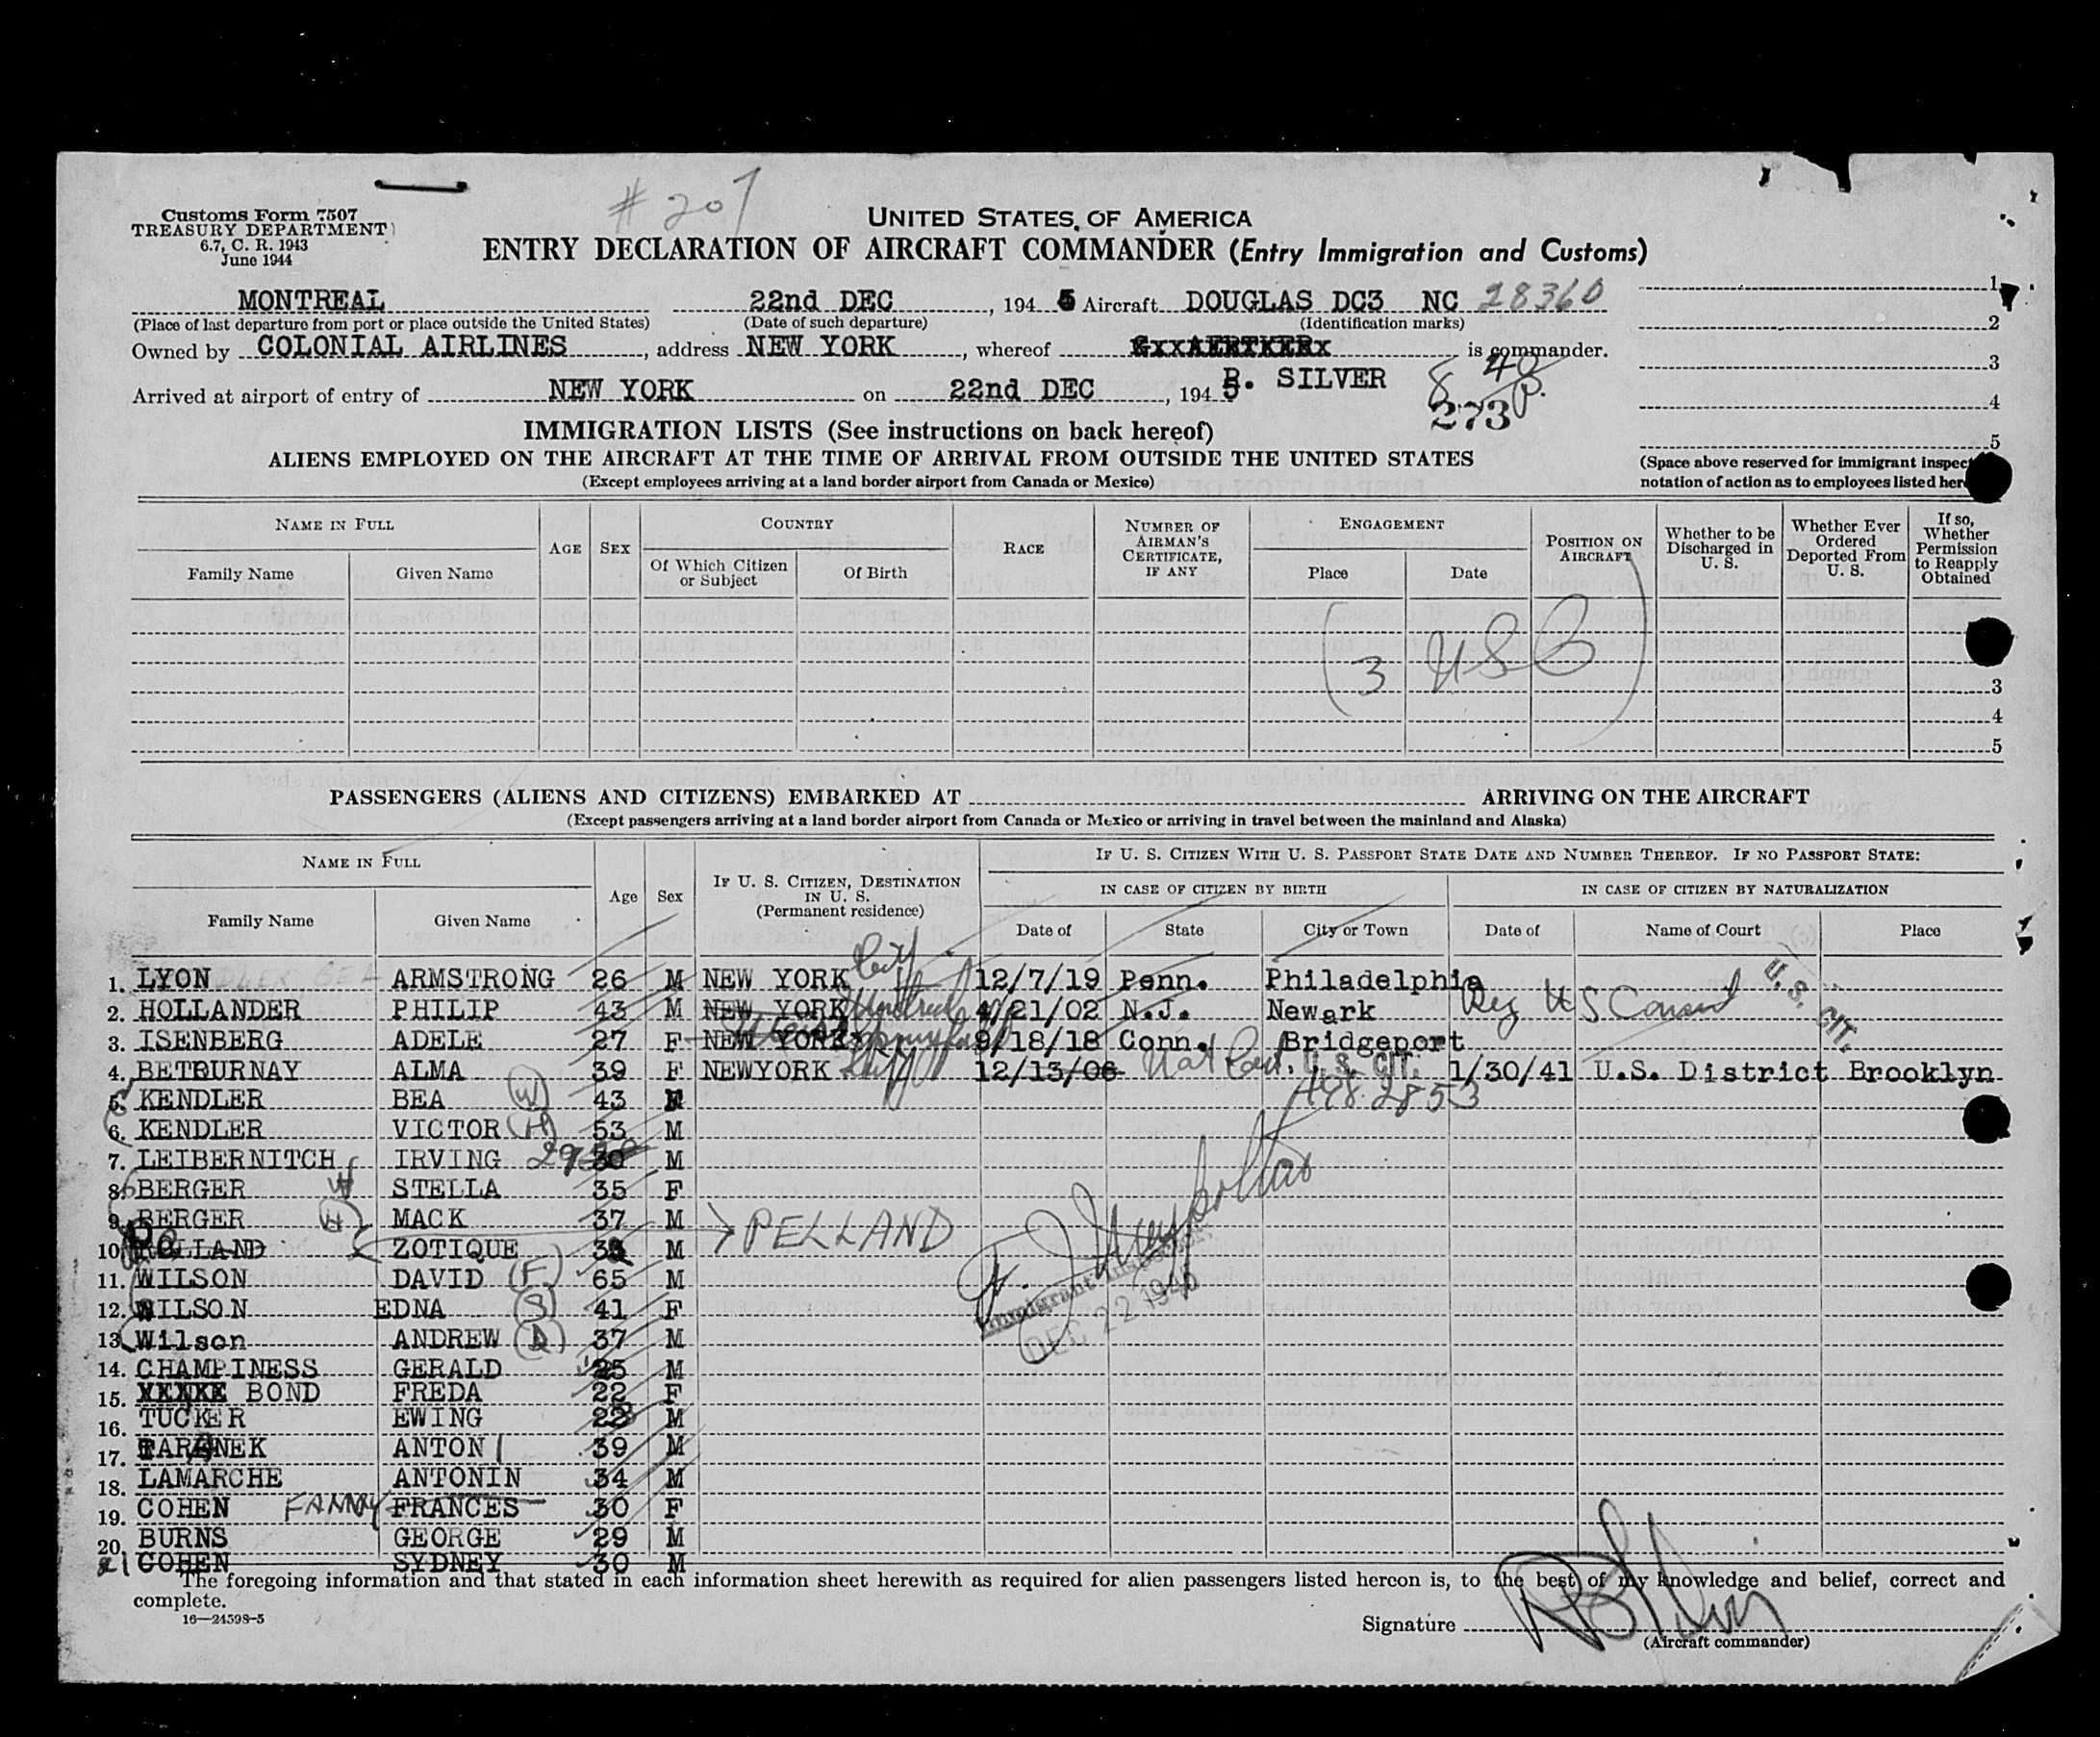 # 207
Customs Form 7507
TREASURY DEPARTMENT
6.7, C. R. 1943
June 1944
UNITED STATES OF AMERICA
ENTRY DECLARATION OF AIRCRAFT COMMANDER (Entry Immigration and Customs)
MONTREAL 22nd DEC , 194 5 Aircraft DOUGLAS DC3 NC 28360 1
(Place of last departure from port or place outside the United States) (Date of such departure) (Identification marks) 2
Owned by COLONIAL AIRLINES , address NEW YORK , whereof is commander.
R. SILVER 3
Arrived at airport of entry of NEW YORK on 22nd DEC , 194 5 4
8 40 P.
273
5
IMMIGRATION LISTS (See instructions on back hereof)
ALIENS EMPLOYED ON THE AIRCRAFT AT THE TIME OF ARRIVAL FROM OUTSIDE THE UNITED STATES
(Except employees arriving at a land border airport from Canada or Mexico)
(Space above reserved for immigrant inspect
notation of action as to employees listed her
NAME IN FULL AGE SEX COUNTRY RACE NUMBER OF AIRMAN'S CERTIFICATE, IF ANY ENGAGEMENT POSITION ON AIRCRAFT Whether to be Discharged in U. S. Whether Ever Ordered Deported From U. S. If so, Whether Permission to Reapply Obtained
Family Name Given Name Of Which Citizen or Subject Of Birth Place Date
(3 USC)
3
4
5
PASSENGERS (ALIENS AND CITIZENS) EMBARKED AT ARRIVING ON THE AIRCRAFT
(Except passengers arriving at a land border airport from Canada or Mexico or arriving in travel between the mainland and Alaska)
NAME IN FULL Age Sex IF U. S. CITIZEN, DESTINATION IN U. S. (Permanent residence) IF U. S. CITIZEN WITH U. S. PASSPORT STATE DATE AND NUMBER THEREOF. IF NO PASSPORT STATE:
IN CASE OF CITIZEN BY BIRTH IN CASE OF CITIZEN BY NATURALIZATION
Family Name Given Name Date of State City or Town Date of Name of Court Place
1. LYON ARMSTRONG 26 M NEW YORK City 12/7/19 Penn. Philadelphia
2. HOLLANDER PHILIP 43 M NEW YORK Montreal 4/21/02 N.J. Newark Reg US Consul U. S. CIT.
3. ISENBERG ADELE 27 F NEW YORK 9/18/18 Conn. Bridgeport
4. BETOURNAY ALMA 39 F NEWYORK 12/13/06 Nat Cert. U. S. CIT. 1/30/41 U.S. District Brooklyn
5. KENDLER BEA (W) 43 F
6. KENDLER VICTOR (H) 53 M
7. LEIBERNITCH IRVING 29 30 M
8. BERGER W STELLA 35 F
9. BERGER H MACK 37 M
10. ROLLAND ZOTIQUE M PELLAND
11. WILSON DAVID (F) 65 M
12. WILSON EDNA (S) 41 F
13. Wilson ANDREW 37 M
Immigrant Inspector
DEC 22 1945
14. CHAMPINESS GERALD 25 M
15. BOND FREDA 22 F
16. TUCKER EWING 23 M
17. TARANEK ANTON 39 M
18. LAMARCHE ANTONIN 34 M
19. COHEN FANNY FRANCES 30 F
20. BURNS GEORGE 29 M
21 COHEN SYDNEY 30 M
The foregoing information and that stated in each information sheet herewith as required for alien passengers listed hereon is, to the best of my knowledge and belief, correct and
complete.
16—24598-5
Signature
(Aircraft commander)